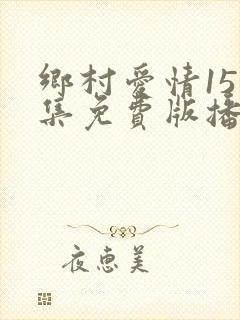 鄉村愛情15
集免費版播
夜恵美